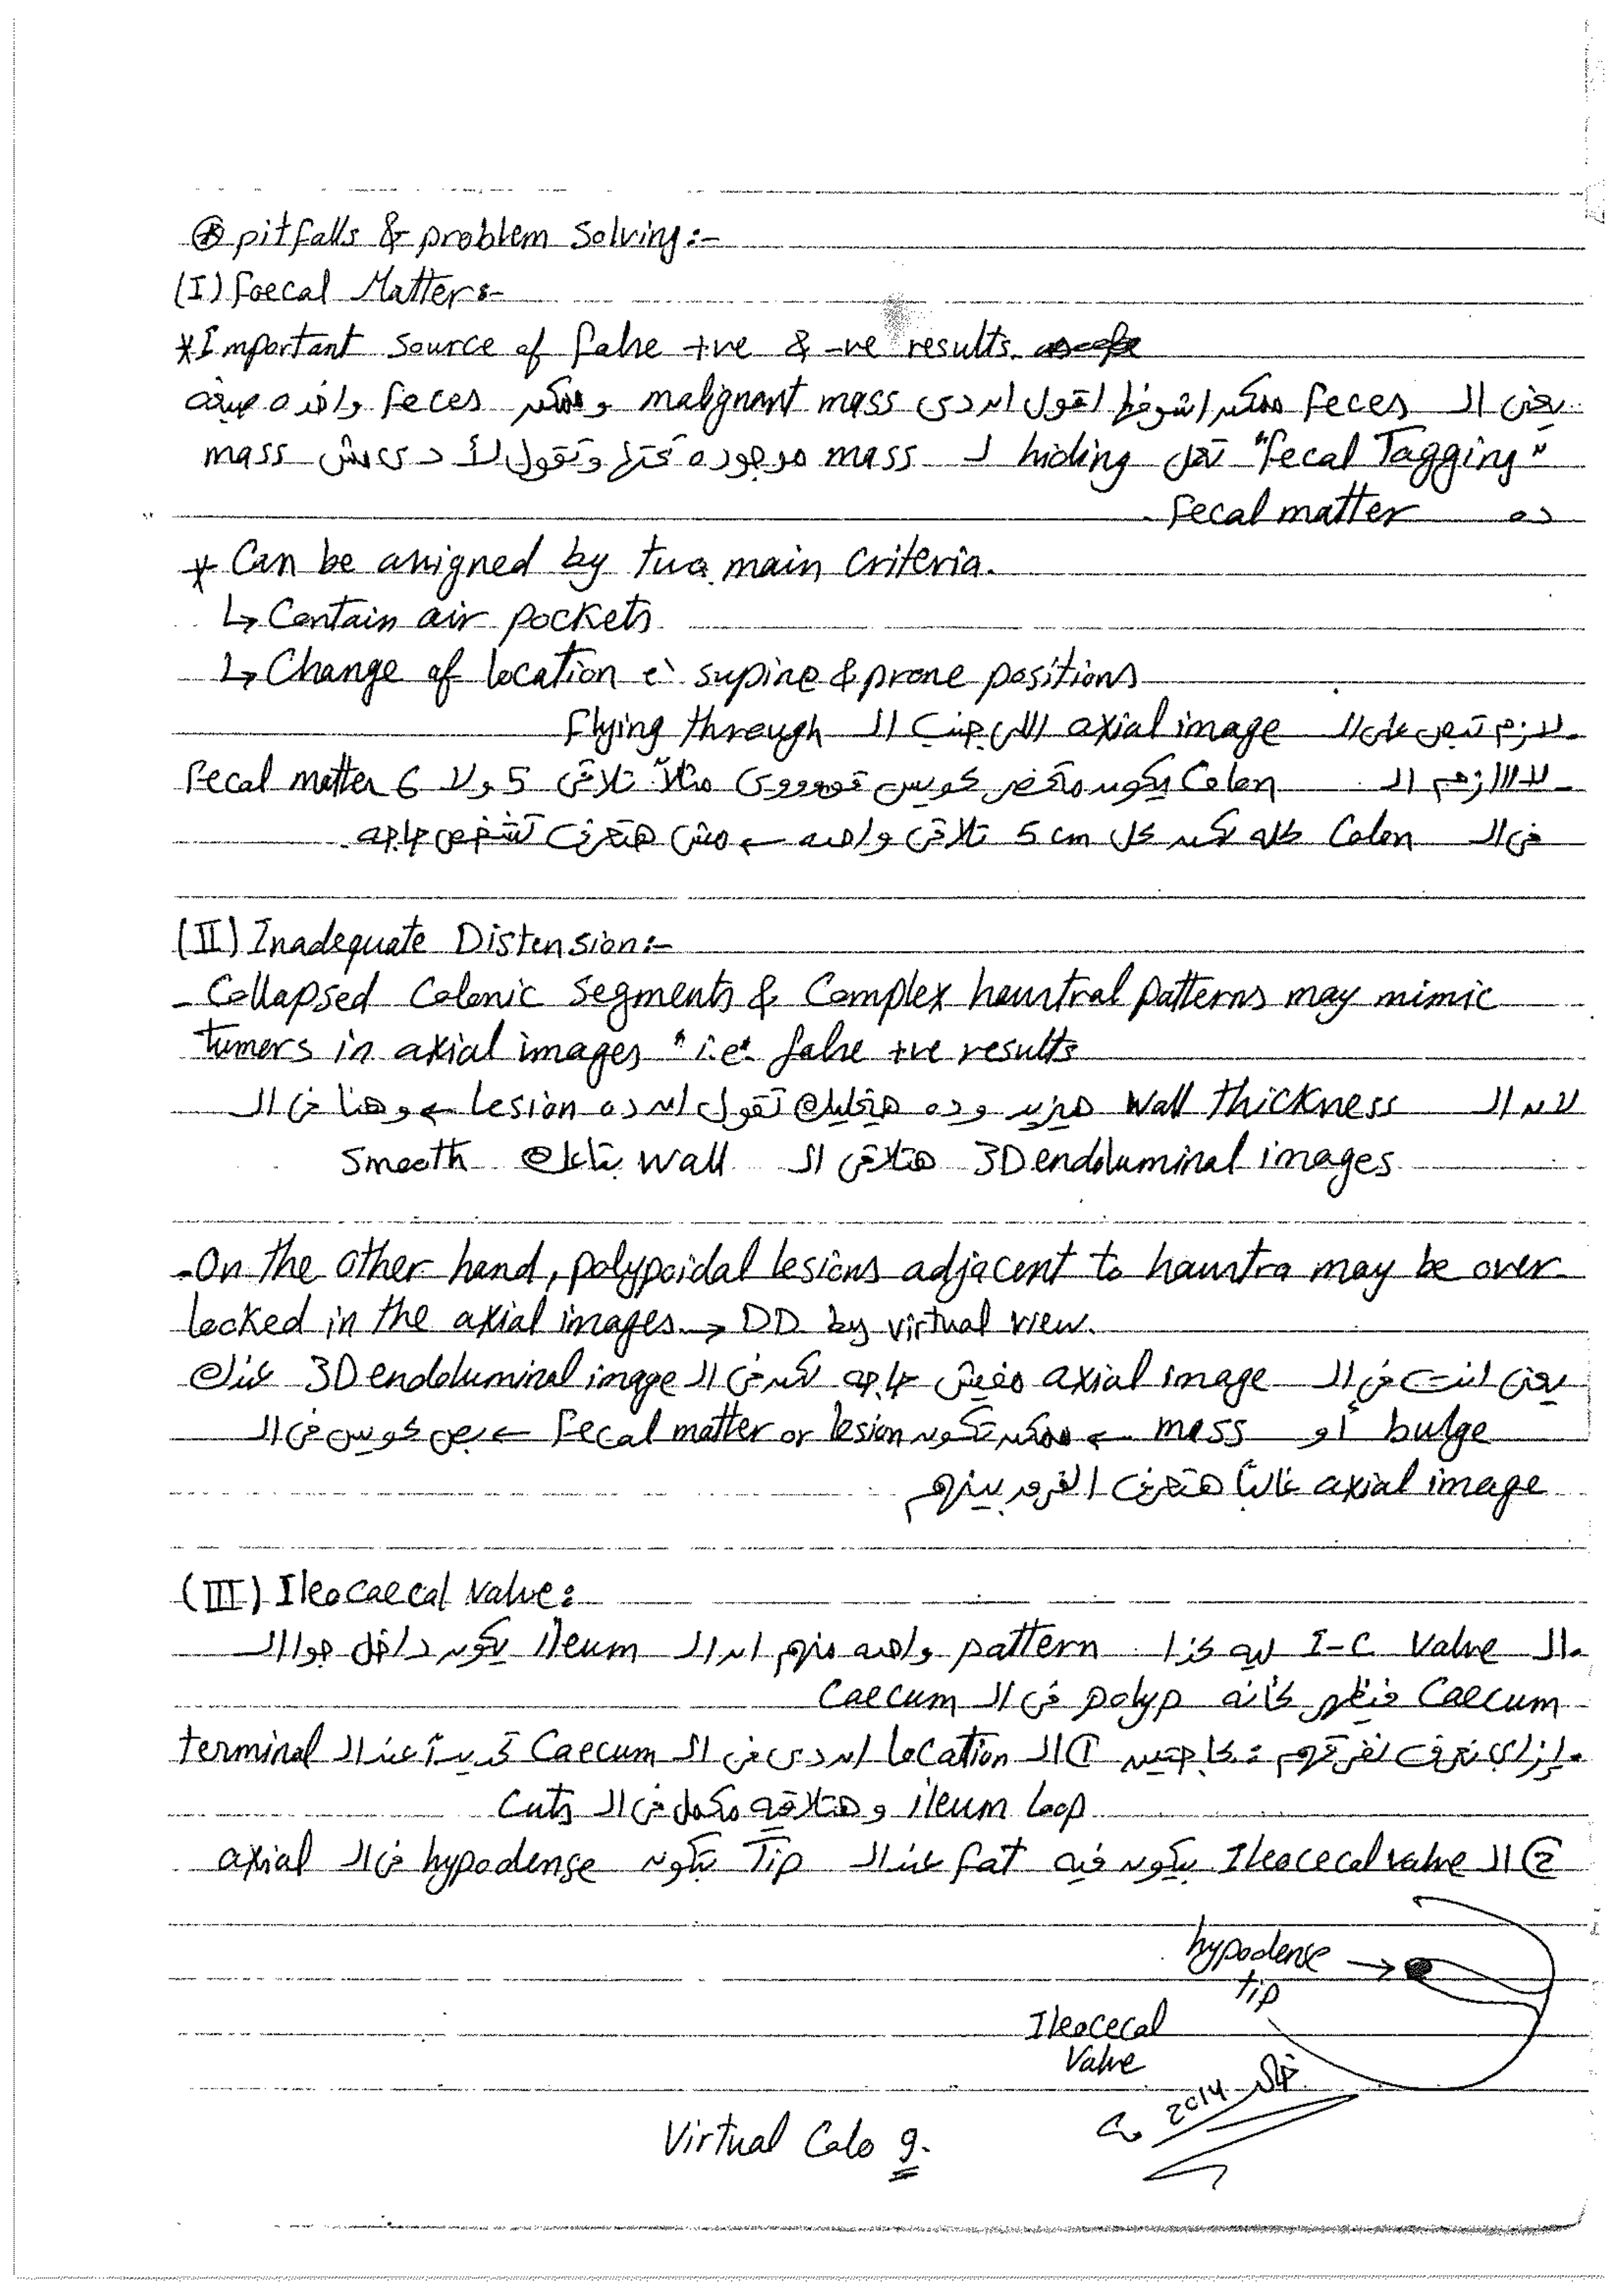 ⊛ pitfalls & problem Solving:-
(I) foecal Matter:-
* Important Source of false +ve & -ve results.
يعني الـ feces ممكن اشوفها اقول ان دي malignant mass و ممكن feces واخده صبغه
"fecal Tagging" تعمل hiding لـ mass موجوده تحتها وتقول لأ دي مش mass
ده fecal matter
* Can be assigned by two main criteria.
↳ Contain air pockets
↳ Change of location c̀ supine & prone positions
لازم تبص على الـ axial image اللي جنب الـ flying through
لااازم الـ Colon يكون متحضر كويس قوووووي مثلاً تلاقي 5 ولا 6 fecal matter
في الـ Colon كله لكن كل 5 cm تلاقي واحده ← مش هتعرف تشخص حاجه
(II) Inadequate Distension:-
- Collapsed Colonic Segments & Complex haustral patterns may mimic
tumors in axial images "i.e" false +ve results
لان الـ Wall thickness هيزيد وده هيخليك تقول ان ده lesion ← وهنا في الـ
3D endoluminal images هتلاقي الـ wall بتاعك Smooth
- On the other hand, polypoidal lesions adjacent to haustra may be over
looked in the axial images → DD by virtual view.
يعني انت في الـ axial image مفيش حاجه لكن في الـ 3D endoluminal image عندك
bulge أو mass ← ممكن تكون fecal matter or lesion ← بص كويس في الـ
axial image غالباً هتعرف الفرق بينهم
(III) Ileocaecal Valve:
الـ I-C Valve ليه كذا pattern واحد منهم ان الـ ileum يكون داخل جوا الـ
Caecum فيظهر كأنه polyp في الـ Caecum
- إزاي نعرف نفرقهم : حاجتين ① الـ Location ان دي في الـ Caecum تحديداً عند الـ terminal
ileum loop و هتلاقيه مكمل في الـ Cuts
② الـ Ileocecal valve بيكون فيه fat عند الـ Tip بتكون hypodense في الـ axial
hypodense →
tip
Ileocecal
Valve
2014
Virtual Colo 9.